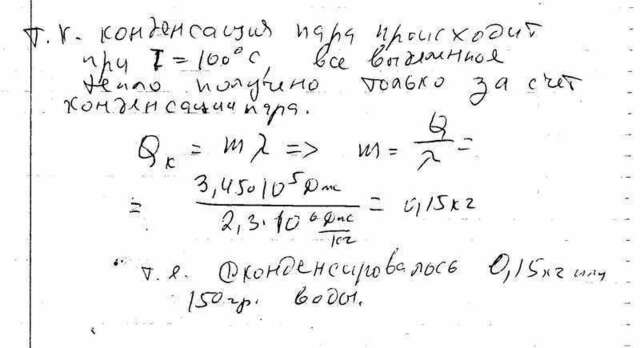 т.к. конденсация пара происходит
при T = 100°C, все выделенное
тепло получено только за счет
конденсации пара.
Qк = mλ => m = Q/λ =
= 3,45·10⁵ Дж / 2,3·10⁶ Дж/кг = 0,15 кг
т.е. сконденсировалось 0,15 кг или
150 гр. воды.